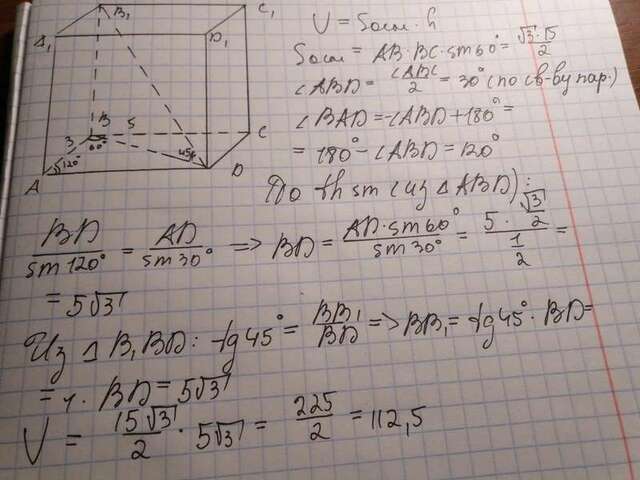 B₁ C₁
A₁ D₁
B 5 C
3 60° 45°
120°
A D
V = Sосн. h
Sосн = AB·BC·sin60° = √3·15/2
∠ABD = ∠ABC/2 = 30° (по св-ву пар.)
∠BAD = -∠ABD + 180° =
= 180° - ∠ABD = 120°
По th sin (из △ABD):
BD/sin120° = AD/sin30° => BD = AD·sin60°/sin30° = (5·√3/2)/(1/2) =
= 5√3
Из △B₁BD: tg45° = BB₁/BD => BB₁ = tg45°·BD =
= 1·BD = 5√3
V = 15√3/2 · 5√3 = 225/2 = 112,5